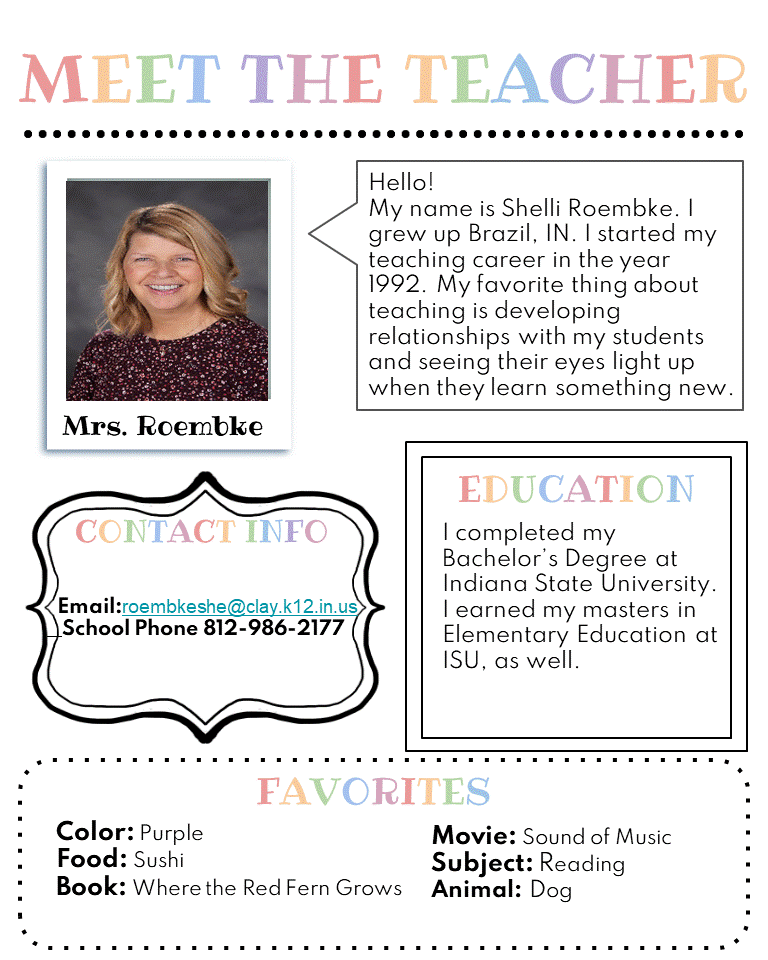 MEET THE TEACHER
Hello!
My name is Shelli Roembke. I
grew up Brazil, IN. I started my
teaching career in the year
1992. My favorite thing about
teaching is developing
relationships with my students
and seeing their eyes light up
when they learn something new.
Mrs. Roembke
CONTACT INFO
Email:roembkeshe@clay.k12.in.us
School Phone 812-986-2177
EDUCATION
I completed my
Bachelor's Degree at
Indiana State University.
I earned my masters in
Elementary Education at
ISU, as well.
FAVORITES
Color: Purple
Food: Sushi
Book: Where the Red Fern Grows
Movie: Sound of Music
Subject: Reading
Animal: Dog